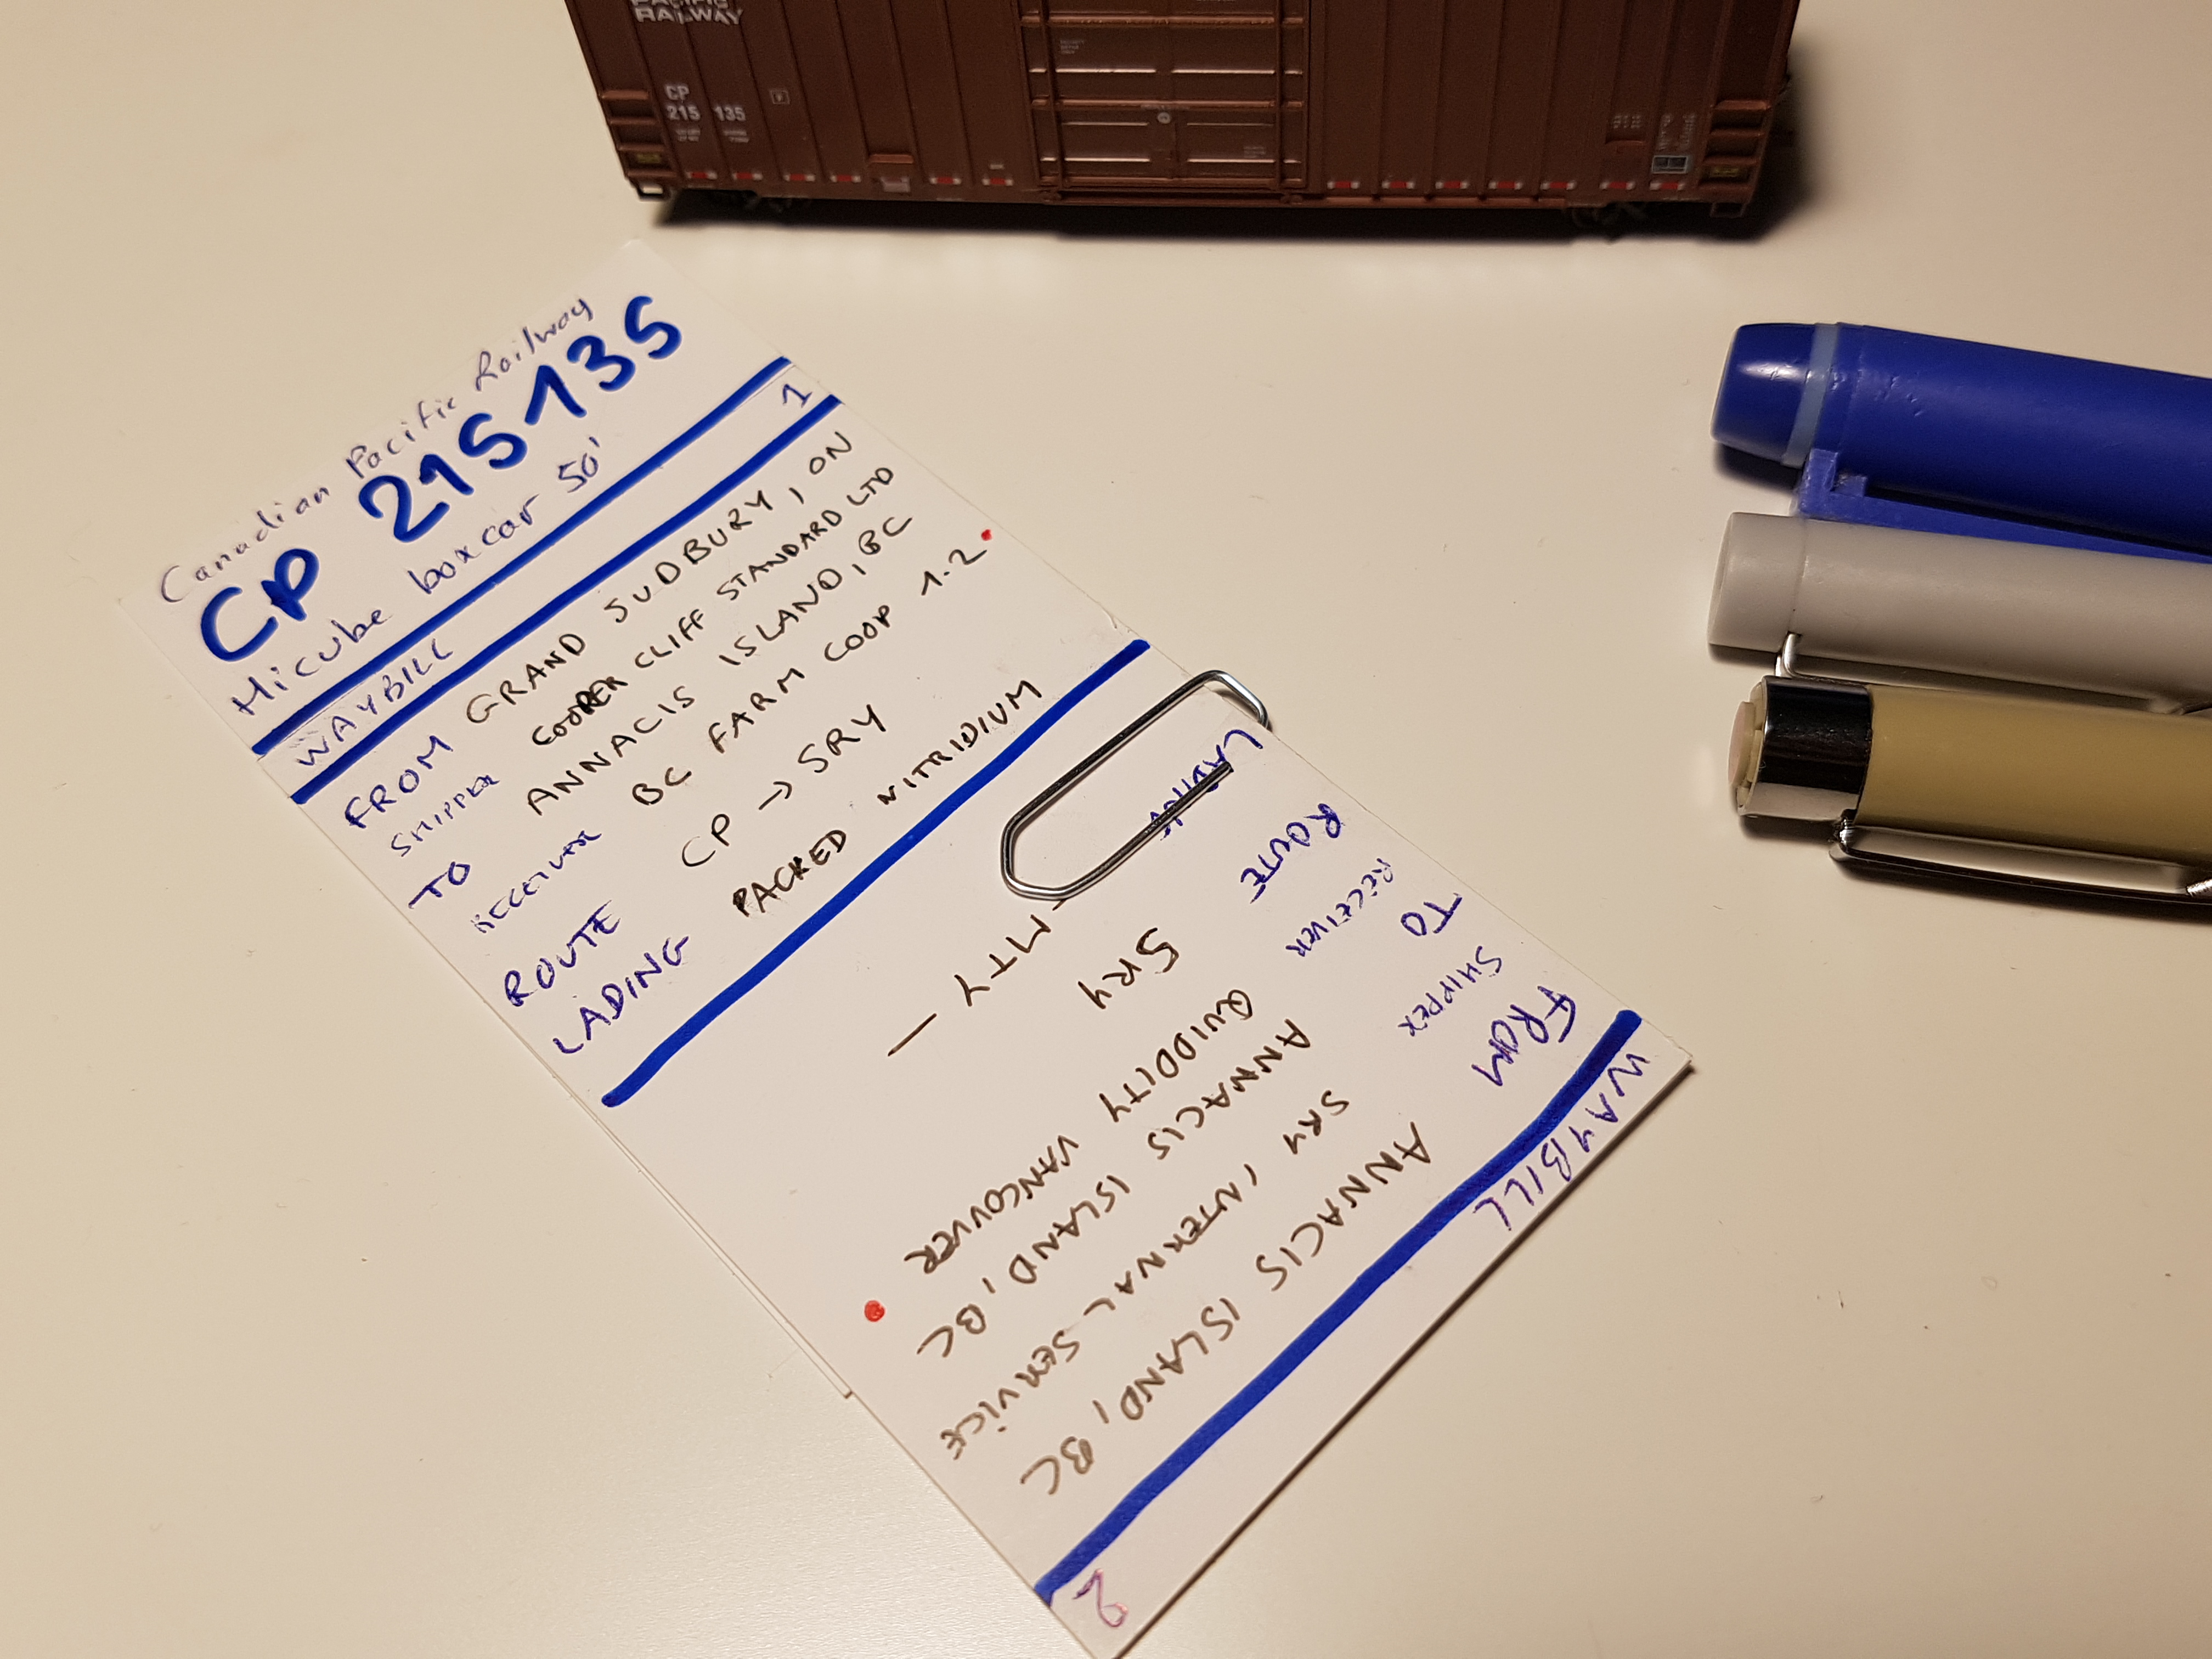 PACIFIC
RAILWAY
CP
215 135
Canadian Pacific Railway
CP 215135
Hicube boxcar 50'
WAYBILL 1
FROM GRAND SUDBURY, ON
SHIPPER COOPER CLIFF STANDARD LTD
TO ANNACIS ISLAND, BC
RECEIVER BC FARM COOP 1.2
ROUTE CP → SRY
LADING PACKED NITRIDIUM
WAYBILL 2
FROM ANNACIS ISLAND, BC
SHIPPER SRY INTERNAL SERVICE
TO ANNACIS ISLAND, BC
RECEIVER QUIDDITY VANCOUVER
ROUTE SRY
LADING — MTY —